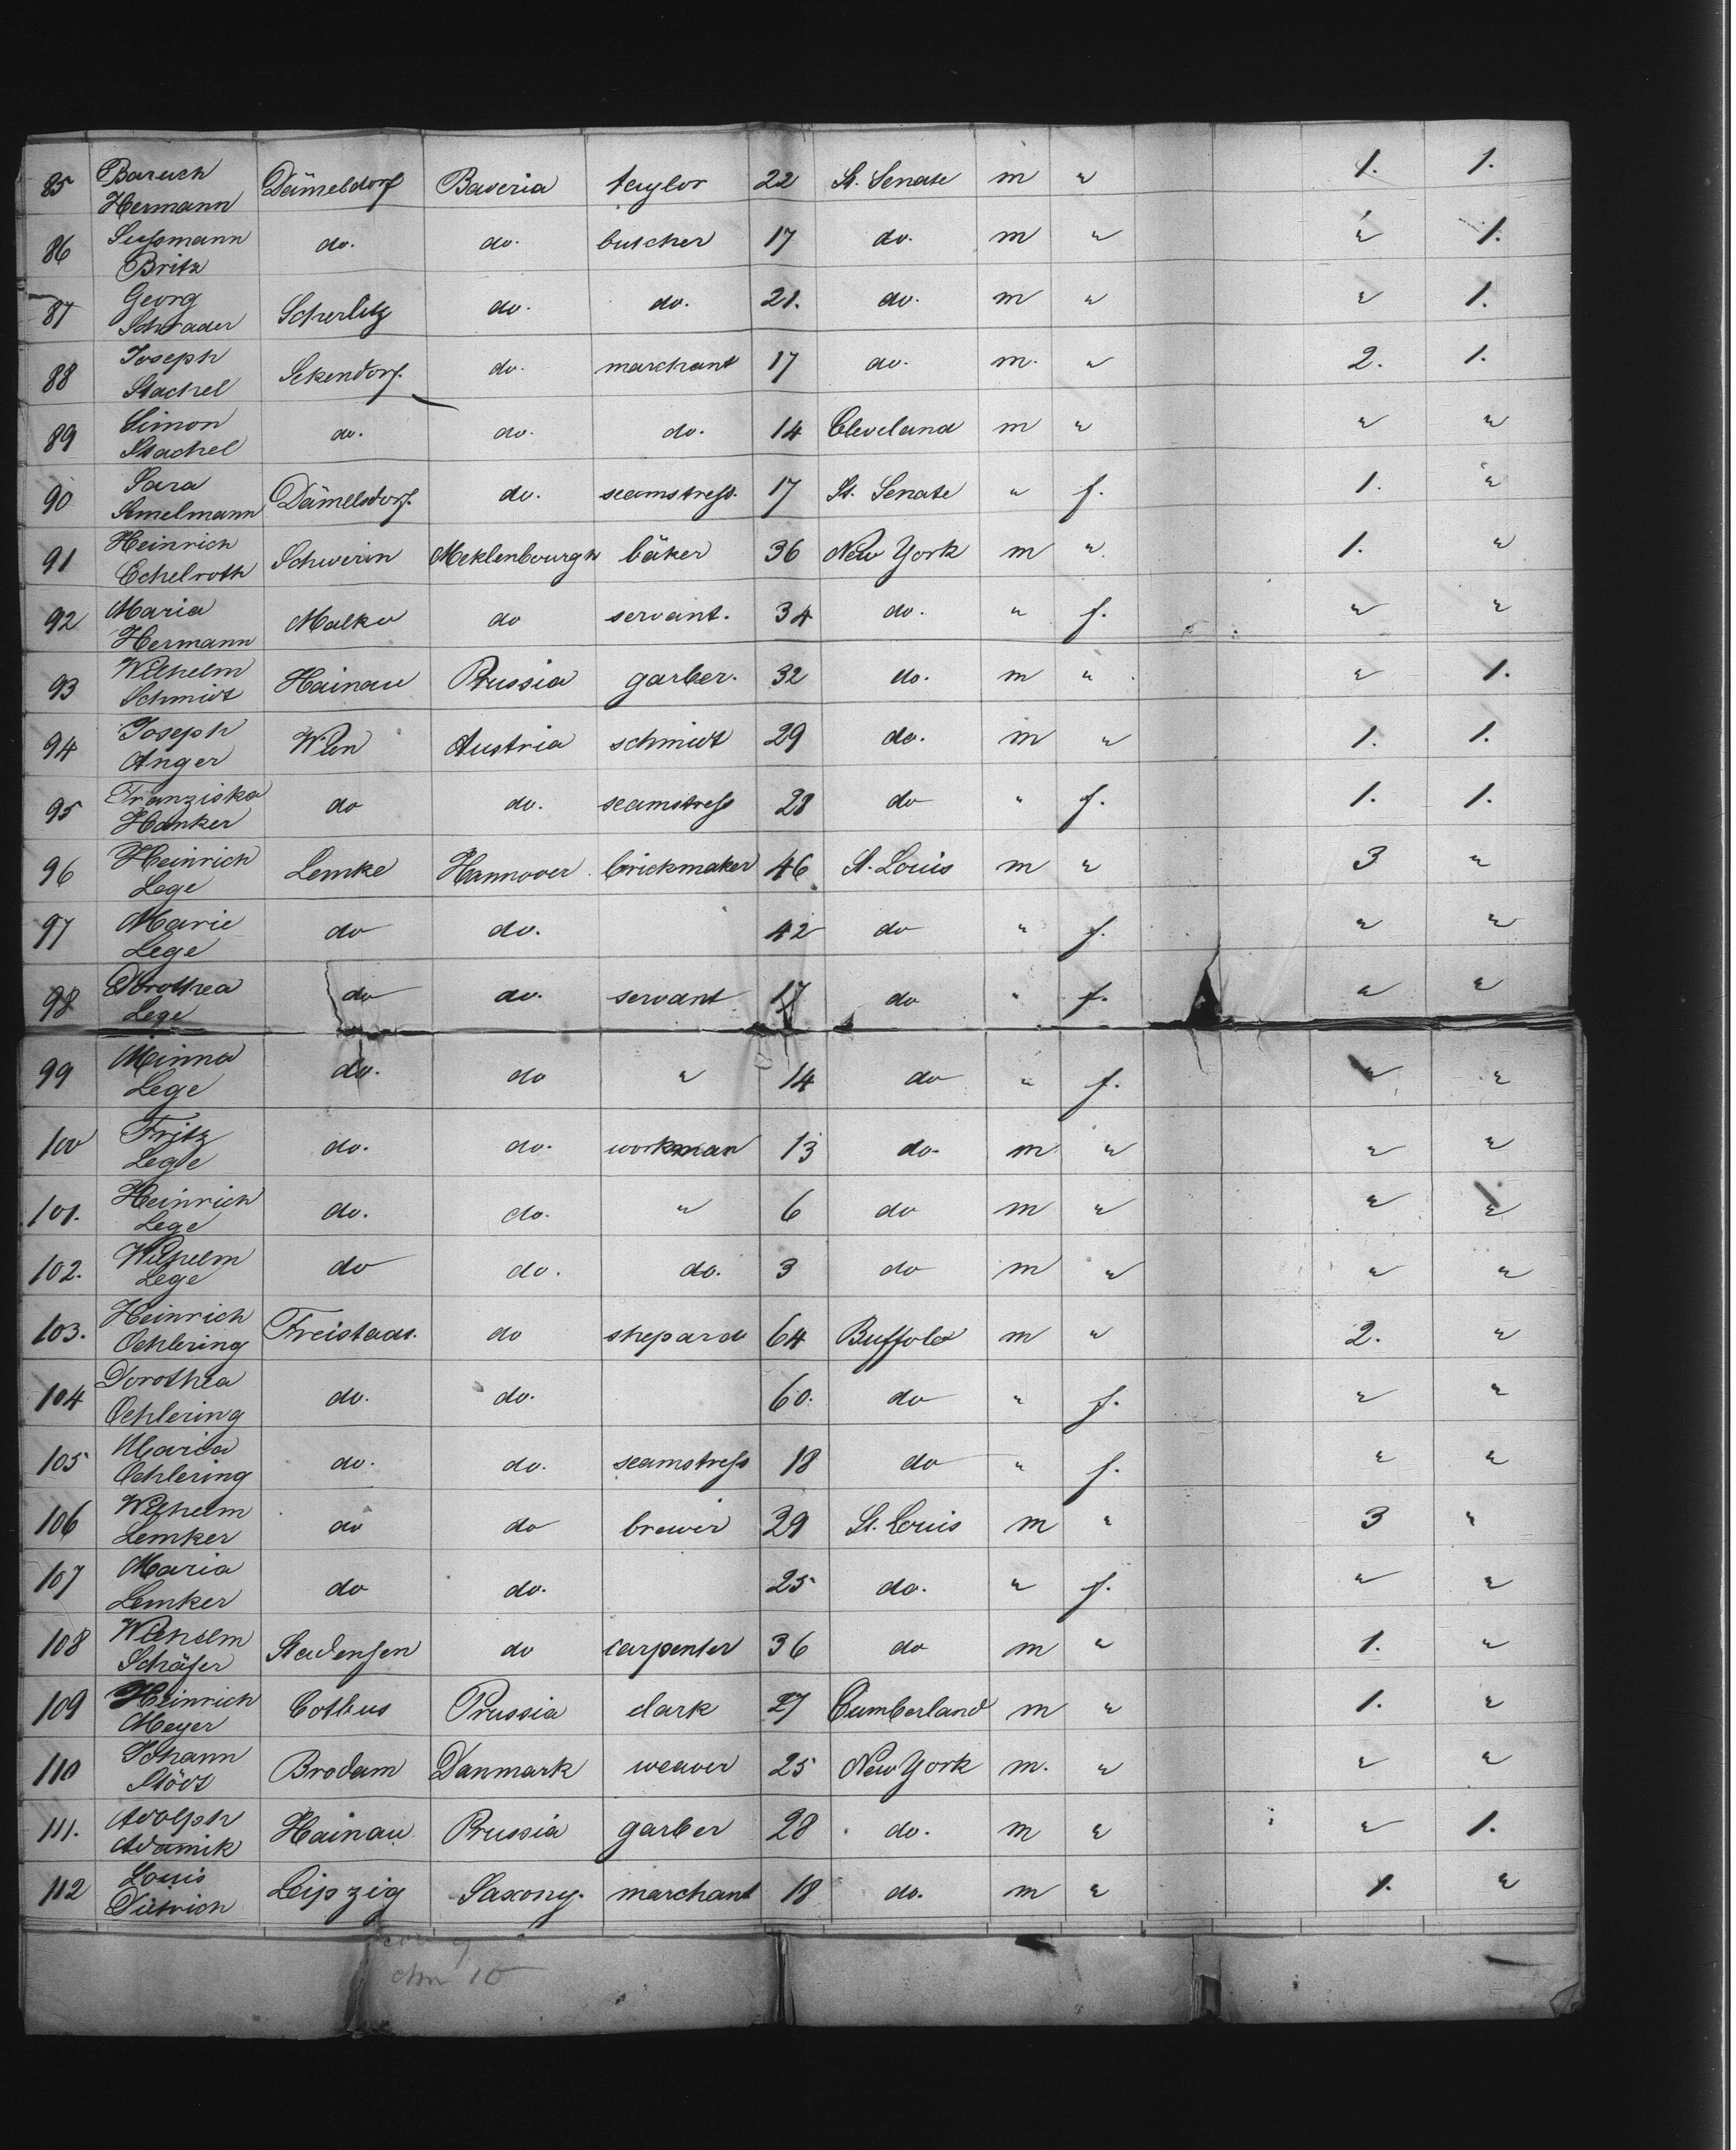 85 Baruch Hermann Dämelsdorf Bavaria taylor 22 St. Senate m " 1. 1.
86 Sussmann Britz do. do. butcher 17 do. m " " 1.
87 Georg Schrader Scherlitz do. do. 21. do. m " " 1.
88 Joseph Stachel Sekendorf. do. marchant 17 do. m. " 2. 1.
89 Simon Stachel do. do. do. 14 Cleveland m " " "
90 Sara Semelmann Dämelsdorf. do. seamstress. 17 St. Senate " f. 1. "
91 Heinrich Echelroth Schwerin Meklenbourgh bäker 36 New York m " 1. "
92 Maria Hermann Malko do servant. 34 do. " f. " "
93 Wilhelm Schmidt Hainau Prussia garber. 32 do. m " " 1.
94 Joseph Anger Wien Austria schmidt 29 do. m " 1. 1.
95 Franziska Hanker do do. seamstress 28 do " f. 1. 1.
96 Heinrich Lege Lemke Hannover brickmaker 46 St. Louis m " 3 "
97 Marie Lege do do. 42 do " f. " "
98 Dorothea Lege do do. servant 17 do " f. " "
99 Minna Lege do. do " 14 do " f. " "
100 Fritz Lege do. do. workman 13 do m " " "
101. Heinrich Lege do. do. " 6 do m " " "
102. Wilhelm Lege do do. do. 3 do m " " "
103. Heinrich Oehlering Freistadt. do shepard 64 Buffolo m " 2. "
104 Dorothea Oehlering do. do. 60. do " f. " "
105 Maria Oehlering do. do. seamstress 18 do " f. " "
106 Wilhelm Lemker do do brewer 29 St. Louis m " 3 "
107 Maria Lemker do do. 25 do. " f. " "
108 Wilhelm Schäfer Stadensen do carpenter 36 do m " 1. "
109 Heinrich Meyer Cotbus Prussia clark 27 Cumberland m " 1. "
110 Johann Brodam Danmark weaver 25 New York m. " " "
111. Adolph Adamik Hainau Prussia garber 28 do. m " " 1.
112 Louis Dietrich Leipzig Saxony. marchant 18 do. m " 1. "
10